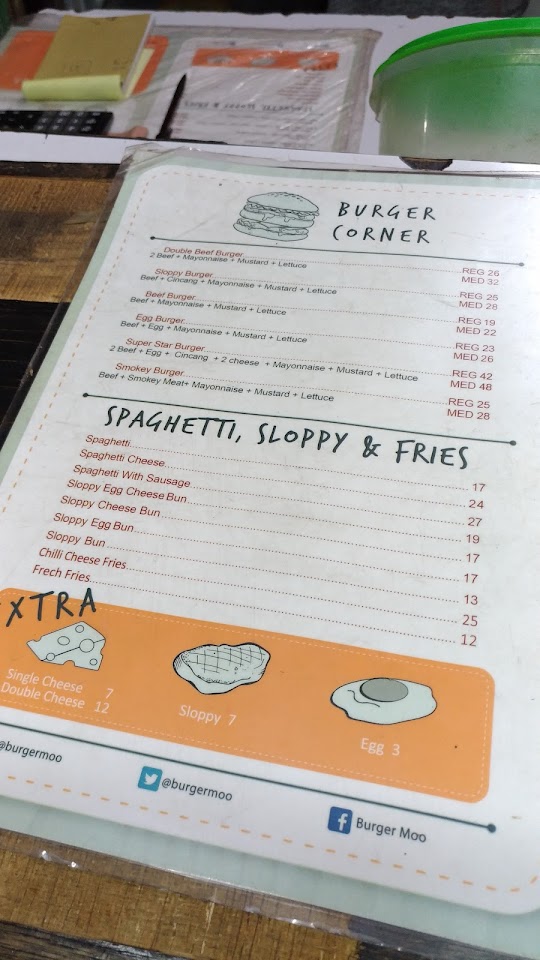 BURGER
CORNER
Double Beef Burger REG 26
2 Beef + Mayonnaise + Mustard + Lettuce MED 32
Sloppy Burger REG 25
Beef + Cincang + Mayonnaise + Mustard + Lettuce MED 28
Beef Burger REG 19
Beef + Mayonnaise + Mustard + Lettuce MED 22
Egg Burger REG 23
Beef + Egg + Mayonnaise + Mustard + Lettuce MED 26
Super Star Burger REG 42
2 Beef + Egg + Cincang + 2 cheese + Mayonnaise + Mustard + Lettuce MED 48
Smokey Burger REG 25
Beef + Smokey Meat+ Mayonnaise + Mustard + Lettuce MED 28
SPAGHETTI, SLOPPY & FRIES
Spaghetti 17
Spaghetti Cheese 24
Spaghetti With Sausage 27
Sloppy Egg Cheese Bun 19
Sloppy Cheese Bun 17
Sloppy Egg Bun 17
Sloppy Bun 13
Chilli Cheese Fries 25
Frech Fries 12
XTRA
Single Cheese 7
Double Cheese 12
Sloppy 7
Egg 3
@burgermoo
@burgermoo
Burger Moo